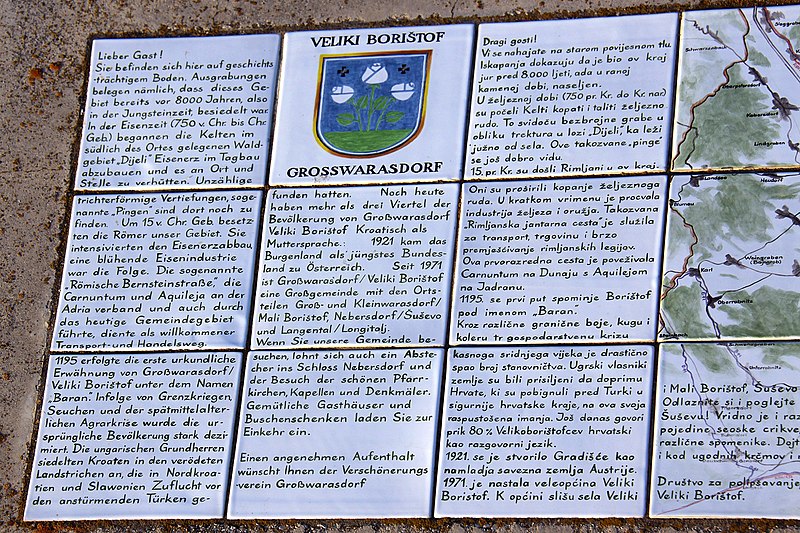 Lieber Gast!
Sie befinden sich hier auf geschichts
trächtigem Boden. Ausgrabungen
belegen nämlich, dass dieses Ge
biet bereits vor 8000 Jahren, also
in der Jungsteinzeit, besiedelt war.
In der Eisenzeit (750 v. Chr. bis Chr.
Geb.) begannen die Kelten im
südlich des Ortes gelegenen Wald-
gebiet „Dijeli" Eisenerz im Tagbau
abzubauen und es an Ort und
Stelle zu verhütten. Unzählige
trichterförmige Vertiefungen, soge-
nannte „Pingen" sind dort noch zu
finden. Um 15 v. Chr. Geb. besetz
ten die Römer unser Gebiet. Sie
intensivierten den Eisenerzabbau,
eine blühende Eisenindustrie
war die Folge. Die sogenannte
„Römische Bernsteinstraße", die
Carnuntum und Aquileja an der
Adria verband und auch durch
das heutige Gemeindegebiet
führte, diente als willkommener
Transport- und Handelsweg.
1195 erfolgte die erste urkundliche
Erwähnung von Großwarasdorf/
Veliki Borištof unter dem Namen
„Baran". Infolge von Grenzkriegen,
Seuchen und der spätmittelalter-
lichen Agrarkrise wurde die ur-
sprüngliche Bevölkerung stark dezi
miert. Die ungarischen Grundherren
siedelten Kroaten in den verödeten
Landstrichen an, die in Nordkroa-
tien und Slawonien Zuflucht vor
den anstürmenden Türken ge-
VELIKI BORIŠTOF
GROSSWARASDORF
funden hatten. Noch heute
haben mehr als drei Viertel der
Bevölkerung von Großwarasdorf
Veliki Borištof Kroatisch als
Muttersprache. 1921 kam das
Burgenland als jüngstes Bundes-
land zu Österreich. Seit 1971
ist Großwarasdorf/Veliki Borištof
eine Großgemeinde mit den Orts-
teilen Groß- und Kleinwarasdorf/
Mali Borištof, Nebersdorf/Šuševo
und Langental/Longitalj.
Wenn Sie unsere Gemeinde be-
suchen, lohnt sich auch ein Abste
cher ins Schloss Nebersdorf und
der Besuch der schönen Pfarr-
kirchen, Kapellen und Denkmäler.
Gemütliche Gasthäuser und
Buschenschenken laden Sie zur
Einkehr ein.
Einen angenehmen Aufenthalt
wünscht Ihnen der Verschönerungs
verein Großwarasdorf
Dragi gosti!
Vi se nahajate na starom povijesnom tlu.
Iskapanja dokazuju da je bio ov kraj
jur pred 8.000 ljeti, ada u ranoj
kamenoj dobi, naseljen.
U željeznoj dobi (750 pr. Kr. do Kr. nar)
su počeli Kelti kopati i taliti željezno
rudu. To svidoču bezbrojne grabe u
obliku troktura u lozi „Dijeli", ka leži
južno od sela. Ove takozvane „pinge"
se još dobro vidu.
15. pr. Kr. su došli Rimljani u ov kraj.
Oni su proširili kopanje željeznoga
ruda. U kratkom vrimenu je procvala
industrija željeza i oružja. Takozvana
„Rimljanska jantarna cesta" je služila
za transport, trgovinu i brzo
premješćivanje rimljanskih legijov.
Ova prvorazredna cesta je poveživala
Carnuntum na Dunaju s Aquilejom
na Jadranu.
1195. se prvi put spominje Borištof
pod imenom „Baran".
Kroz različne granične boje, kugu i
koleru tr gospodarstvenu krizu
kasnoga sridnjega vijeka je drastično
spao broj stanovničtva. Ugrski vlasniki
zemlje su bili prisiljeni da doprimu
Hrvate, ki su pobignuli pred Turki u
sigurnije hrvatske kraje, na ova svoja
raspustošena imanja. Još danas govori
prik 80 % Velikoborištofcev hrvatski
kao razgovorni jezik.
1921. se je stvorilo Gradišće kao
namladja savezna zemlja Austrije.
1971. je nastala veleopćina Veliki
Borištof. K općini slišu sela Veliki
i Mali Borištof, Šuševo
Odlaznite si i poglejte
Šuševu! Vridno je i raz
pojedine seoske crikve,
različne spomenike. Dojt
i kod ugodnih krčmov i
Društvo za polipšavanje
Veliki Borištof.
Schwarzenbach
Sieggraben
Oberpetersdorf
Kobersdorf
Lindgraben
Landsee
Neudorf
Blumau
Karl
Weingraben
Oberrabnitz